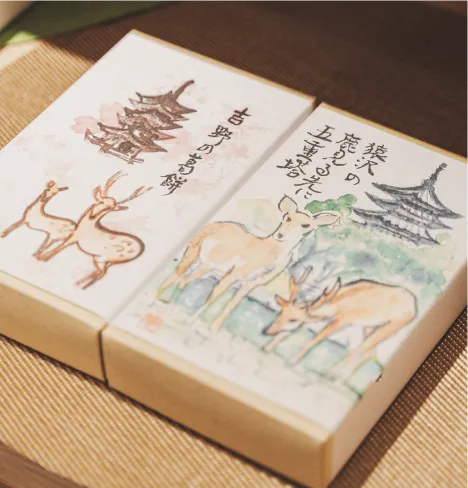 吉野の葛餅
猿沢の
鹿見る先に
五重塔